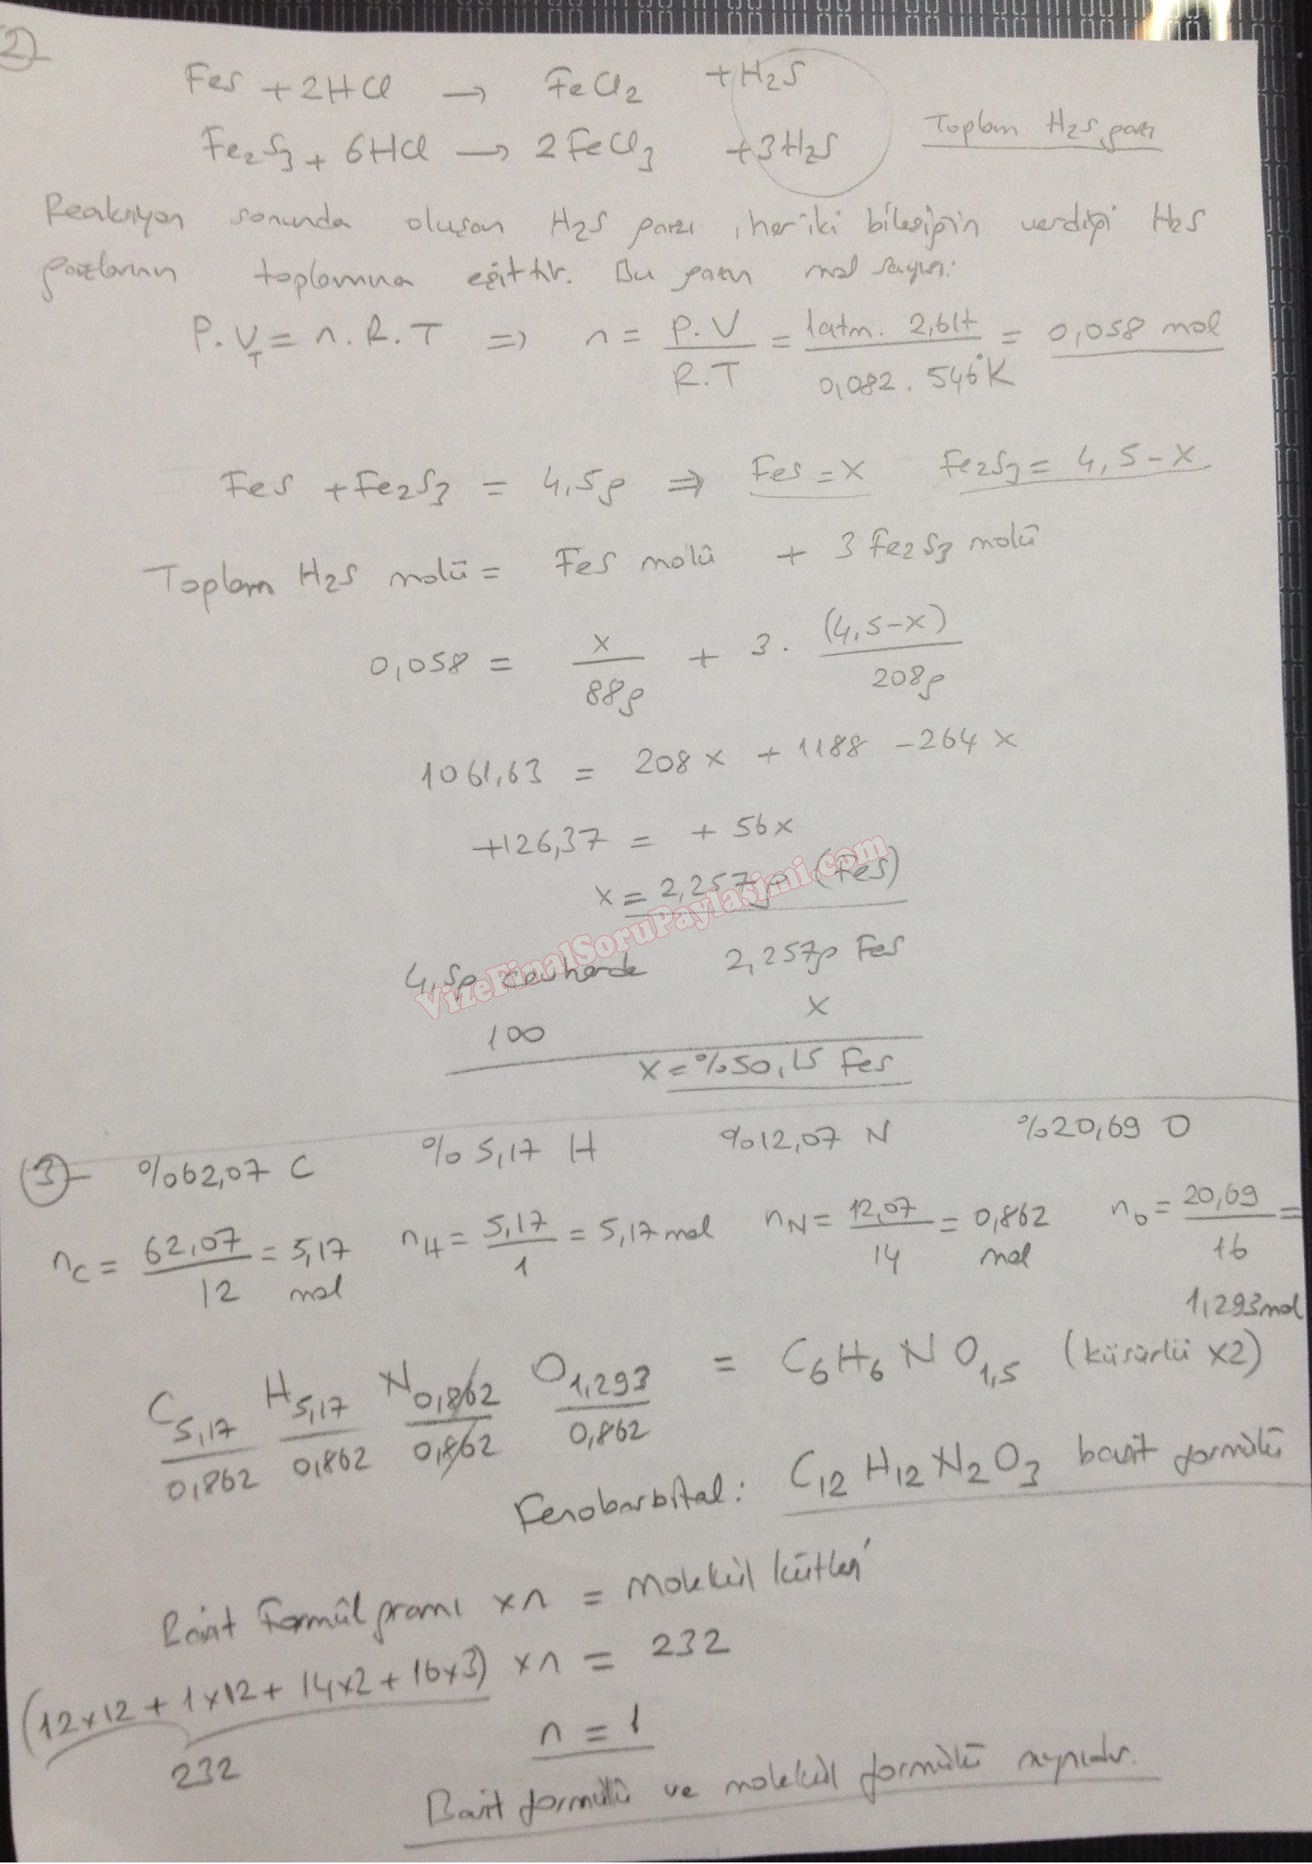 2)
FeS + 2HCl → FeCl2 + H2S
Fe2S3 + 6HCl → 2FeCl3 + 3H2S Toplam H2S gazı
Reaksiyon sonunda oluşan H2S gazı, her iki bileşiğin verdiği H2S
gazlarının toplamına eşittir. Bu gazın mol sayısı:
P.VT = n.R.T ⇒ n = P.V / R.T = 1atm. 2,6lt / 0,082. 546°K = 0,058 mol
FeS + Fe2S3 = 4,5g ⇒ FeS = x Fe2S3 = 4,5-x
Toplam H2S molü = FeS molü + 3 Fe2S3 molü
0,058 = x / 88g + 3. (4,5-x) / 208g
1061,63 = 208x + 1188 - 264x
+126,37 = +56x
x = 2,257g (FeS)
4,5g cevherde 2,257g FeS
100 x
x = %50,15 FeS
VizeFinalSoruPaylasimi.com
3- %62,07 C %5,17 H %12,07 N %20,69 O
nC = 62,07 / 12 = 5,17 mol nH = 5,17 / 1 = 5,17 mol nN = 12,07 / 14 = 0,862 mol nO = 20,69 / 16 = 1,293 mol
C 5,17 / 0,862 H 5,17 / 0,862 N 0,862 / 0,862 O 1,293 / 0,862 = C6H6NO1,5 (küsürlü x2)
Fenobarbital: C12H12N2O3 basit formülü
Basit Formül gramı x n = molekül kütlesi
(12x12 + 1x12 + 14x2 + 16x3) x n = 232
232
n = 1
Basit formülü ve molekül formülü aynıdır.